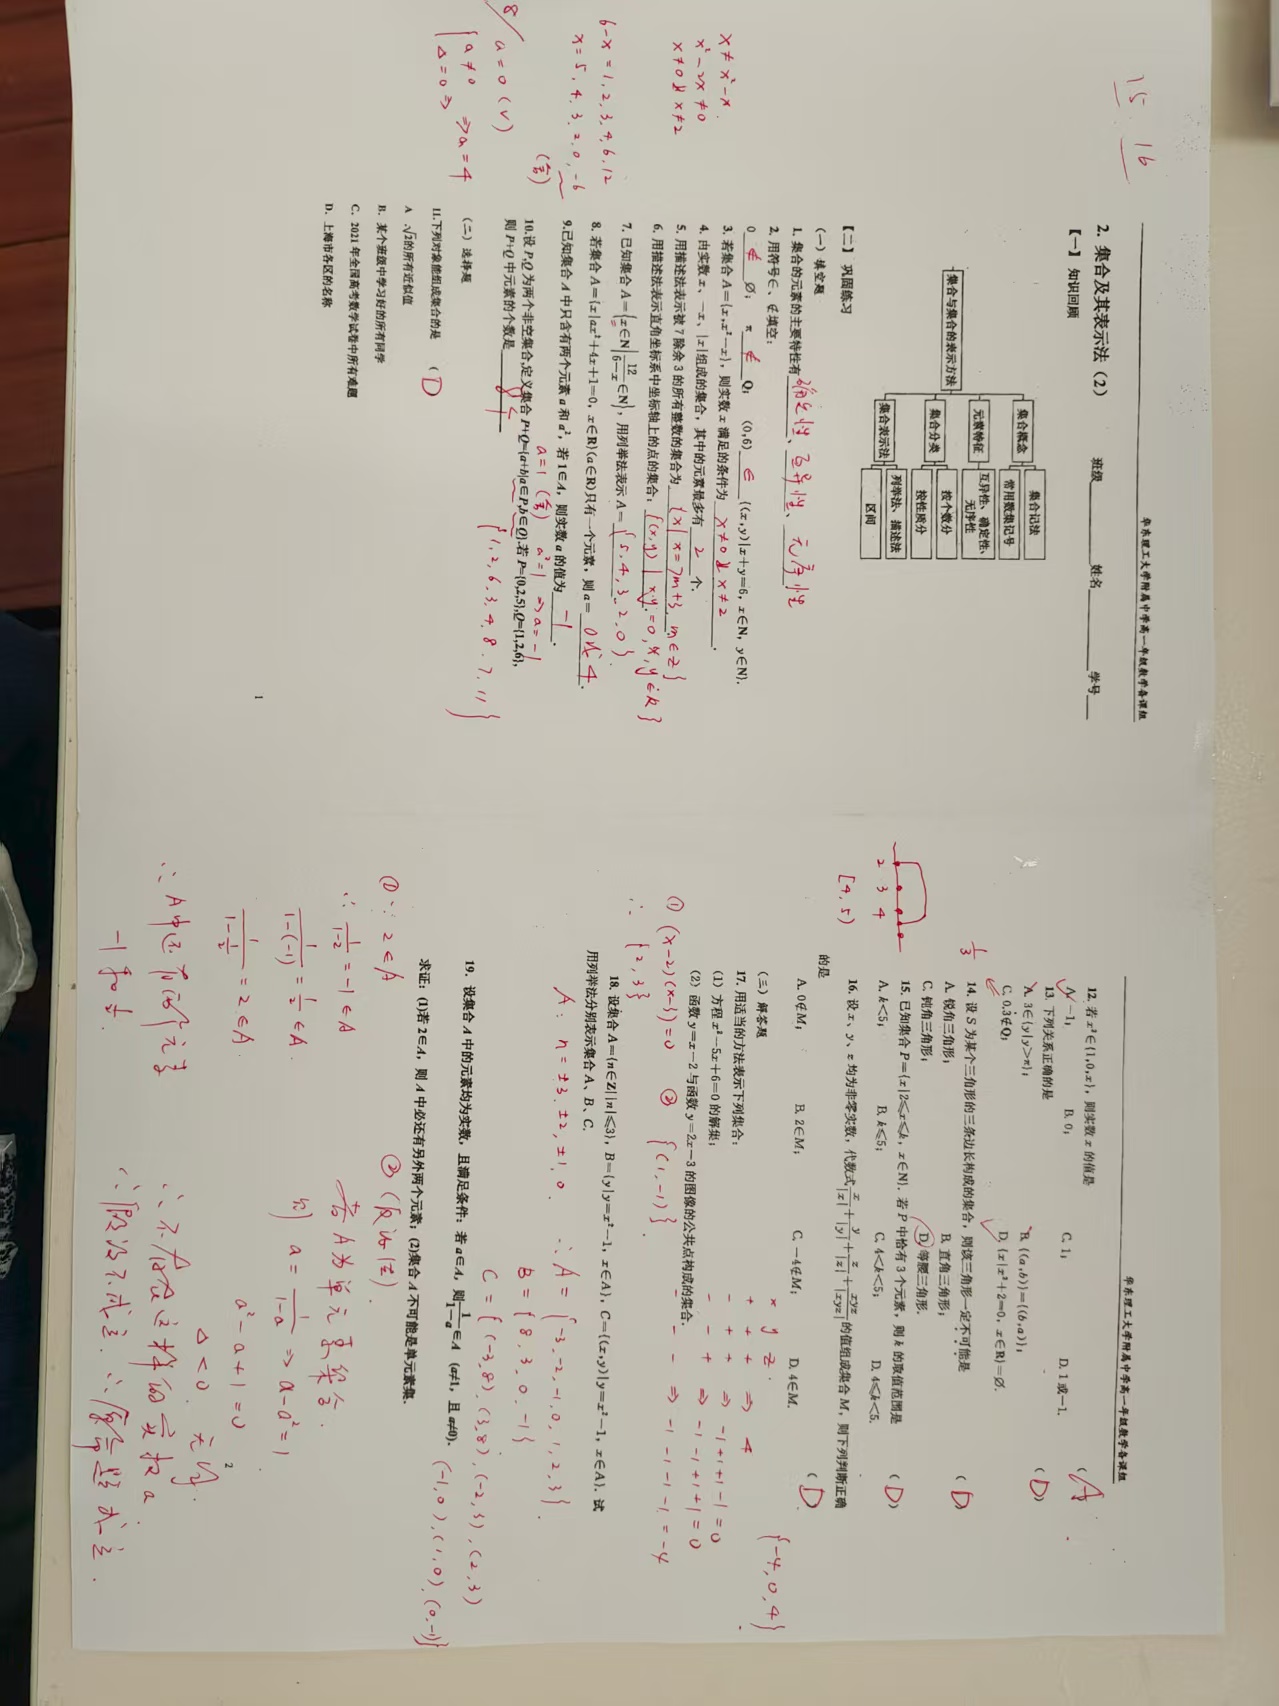 15. 16
华东理工大学附属中学高一年级数学备课组
2. 集合及其表示法（2） 班级________ 姓名________ 学号___
【一】 知识回顾
集合与集合的表示方法
集合概念
集合记法
常用数集记号
元素特征
互异性、确定性、
无序性
集合分类
按个数分
按性质分
集合表示法
列举法、描述法
区间
【二】 巩固练习
（一）填空题
1. 集合的元素的主要特性有 确定性、互异性、无序性
2. 用符号∈、∉填空：
0 ∉ ∅； π ∉ Q； (0,6) ∈ {(x,y)|x+y=6, x∈N, y∈N}.
3. 若集合 A={x,x²−x}，则实数 x 满足的条件为 x≠0且x≠2 .
x≠x²−x.
x²−2x≠0
x≠0且x≠2
4. 由实数 x、−x、|x|组成的集合，其中的元素最多有 2 个.
5. 用描述法表示被 7 除余 3 的所有整数的集合为 {x|x=7m+3, m∈Z}
6. 用描述法表示直角坐标系中坐标轴上的点的集合: {(x,y)|x·y=0, x,y∈R}
7. 已知集合 A={x∈N|12/(6−x)∈N}，用列举法表示 A= {5,4,3,2,0}.
6−x=1,2,3,4,6,12
x=5,4,3,2,0,−6
(舍)
8. 若集合 A={x|ax²+4x+1=0, x∈R}(a∈R)只有一个元素，则 a= 0或4 .
9.已知集合 A 中只含有两个元素 a 和 a²，若 1∈A，则实数 a 的值为 −1 .
a=1 (舍) a²=1 ⇒a=−1
10.设 P,Q 为两个非空集合,定义集合 P+Q={a+b|a∈P,b∈Q}.若 P={0,2,5},Q={1,2,6},
则 P+Q 中元素的个数是 8个
{1,2,6,3,4,8,7,11}
8/ a=0 (√)
{a≠0
Δ=0⇒ ⇒a=4
（二）选择题
11.下列对象能组成集合的是 （D）
A .√2的所有近似值
B. 某个班级中学习好的所有同学
C. 2021 年全国高考数学试卷中所有难题
D. 上海市各区的名称
1
华东理工大学附属中学高一年级数学备课组
12. 若 x²∈{1,0,x}，则实数 x 的值是 （A）
A. −1； B. 0； C. 1； D. 1 或−1.
13. 下列关系正确的是 （D）
A. 3∈{y|y>π}； B. {(a,b)}={(b,a)}；
C. 0.3̇∉Q； D. {x|x²+2=0, x∈R}=∅.
1/3
14. 设 S 为某个三角形的三条边长构成的集合，则该三角形一定不可能是 （D）
A. 锐角三角形； B. 直角三角形；
C. 钝角三角形； D. 等腰三角形.
15. 已知集合 P={x|2≤x≤k, x∈N}. 若 P 中恰有 3 个元素，则 k 的取值范围是 （D）
A. k<5； B. k≤5； C. 4<k<5； D. 4≤k<5.
2 3 4
[4,5)
16. 设 x、y、z 均为非零实数，代数式 x/|x|+y/|y|+z/|z|+xyz/|xyz| 的值组成集合 M，则下列判断正确
的是 （D）
A. 0∉M； B. 2∈M； C. −4∉M； D. 4∈M.
{−4,0,4}
x y z
+ + + ⇒ 4
− + + ⇒ −1+1+1−1=0
− − + ⇒ −1−1+1+1=0
− − − ⇒ −1−1−1−1=−4
（三）解答题
17. 用适当的方法表示下列集合：
（1）方程 x²−5x+6=0 的解集；
（2）函数 y=x−2 与函数 y=2x−3 的图像的公共点构成的集合.
① (x−2)(x−3)=0 ② {(1,−1)}.
∴ {2,3}
18. 设集合 A={n∈Z||n|≤3}，B={y|y=x²−1, x∈A}，C={(x,y)|y=x²−1, x∈A}. 试
用列举法分别表示集合 A、B、C.
A: n=±3,±2,±1,0. ∴A={−3,−2,−1,0,1,2,3}.
B={8,3,0,−1}
C={(−3,8),(3,8),(−2,3),(2,3)
(−1,0),(1,0),(0,−1)}
19. 设集合 A 中的元素均为实数，且满足条件：若 a∈A，则 1/(1−a)∈A （a≠1，且 a≠0）.
求证：(1)若 2∈A，则 A 中必还有另外两个元素；(2)集合 A 不可能是单元素集.
① ∵ 2∈A
∴ 1/(1−2)=−1∈A
1/(1−(−1))=1/2∈A.
1/(1−1/2)=2∈A.
∴A中还有两个元素
−1和1/2.
② (反证法).
若A为单元素集合.
则 a=1/(1−a) ⇒ a−a²=1
a²−a+1=0
Δ<0. 无解.
∴不存在这样的实数a.
∴假设不成立. ∴原命题成立.
2